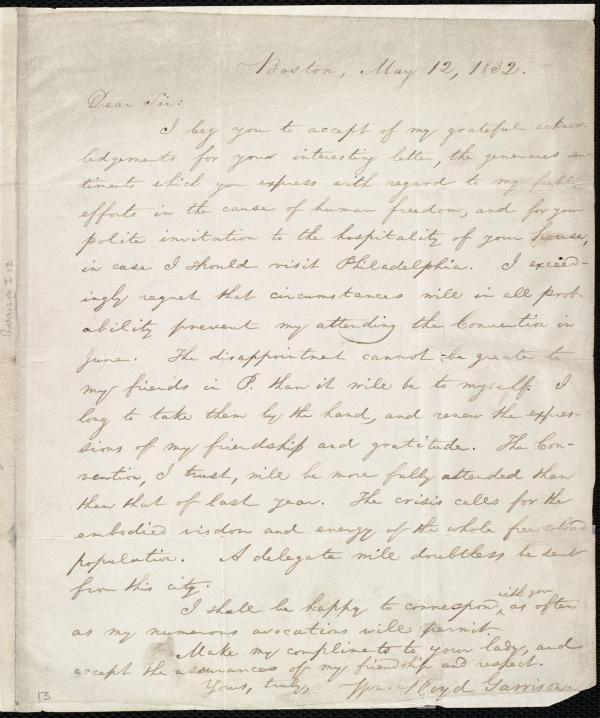 Boston, May 12, 1832.
Dear Sir:
I beg you to accept of my grateful acknow-
ledgements for your interesting letter, the generous sen-
timents which you express with regard to my feeble
efforts in the cause of human freedom, and for your
polite invitation to the hospitality of your house,
in case I should visit Philadelphia. I exceed-
ingly regret that circumstances will in all prob-
ability prevent my attending the Convention in
June. The disappointment cannot be greater to
my friends in P. than it will be to myself. I
long to take them by the hand, and renew the expres-
sions of my friendship and gratitude. The Con-
vention, I trust, will be more fully attended than
then that of last year. The crisis calls for the
embodied wisdom and energy of the whole free colored
population. A delegate will doubtless be sent
from this city.
I shall be happy to correspond with you as often
as my numerous avocations will permit.
Make my compliments to your lady, and
accept the assurances of my friendship and respect.
Yours, truly, Wm. Lloyd Garrison.
13